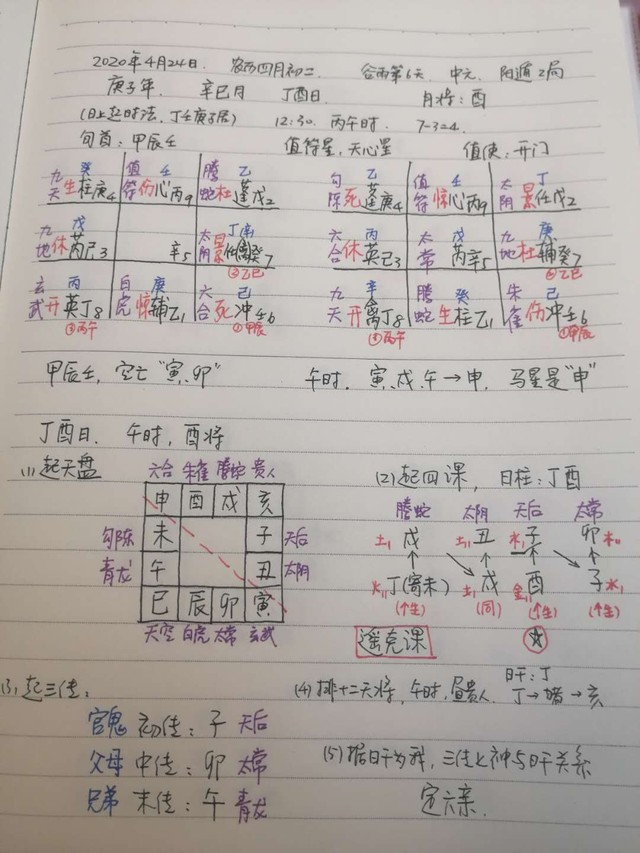 2020年4月24日. 农历四月初二. 谷雨第6天. 中元. 阳遁2局
庚子年. 辛巳月 丁酉日. 月将:酉
(日上起时法,丁壬庚子居) 12:30. 丙午时. 7-3=4.
旬首:甲辰壬 值符星,天心星 值使:开门
九天 癸 生柱庚4 值符 壬 伤心丙9 腾蛇 乙 杜蓬戊2
勾陈 乙 死蓬庚4 值符 壬 惊心丙9 太阴 丁 景任戊2
九地 戊 休芮己3 辛5 太阴 丁 景任癸7 ②乙巳
六合 休英己3 太常 戊 芮辛5 九地 庚 杜辅癸7 ②乙巳
玄武 丙 开英丁8 ③丙午 白虎 庚 惊辅乙1 六合 己 死冲壬6 ①甲辰
九天 辛 开禽丁8 ③丙午 腾蛇 癸 生柱乙1 朱雀 己 伤冲壬6 ①甲辰
甲辰壬,空亡"寅、卯" 午时. 寅、戌、午→申. 马星是"申"
丁酉日. 午时,酉将
(1)起天盘 六合 朱雀 腾蛇 贵人
申 酉 戌 亥
勾陈 未 子 天后
青龙 午 丑 太阴
巳 辰 卯 寅
天空 白虎 太常 玄武
(2)起四课, 日柱:丁酉
腾蛇 太阴 天后 太常
土 戌 土 丑 水 子 卯 木
↑ ↑ ↑ ↑
火 丁(寄未) 土 戌 金 酉 子 水
(个生) (同) (个生) (个生)
遥克课
(3)起三传:
官鬼 初传:子 天后
父母 中传:卯 太常
兄弟 末传:午 青龙
(4)排十二天将,午时.昼贵人. 日干:丁
丁→猪→亥
(5)据日干为我,三传上神与日干关系
定六亲.